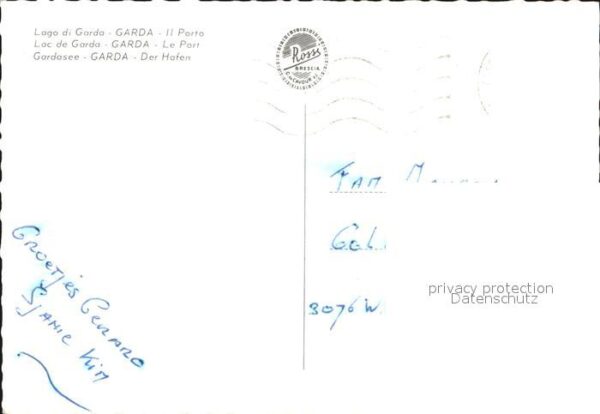 Lago di Garda - GARDA - Il Porto
Lac de Garda - GARDA - Le Port
Gardasee - GARDA - Der Hafen
Rossi
BRESCIA
Groetjes Gerard
Sjanie Kim
Fam
3076 W
privacy protection
Datenschutz